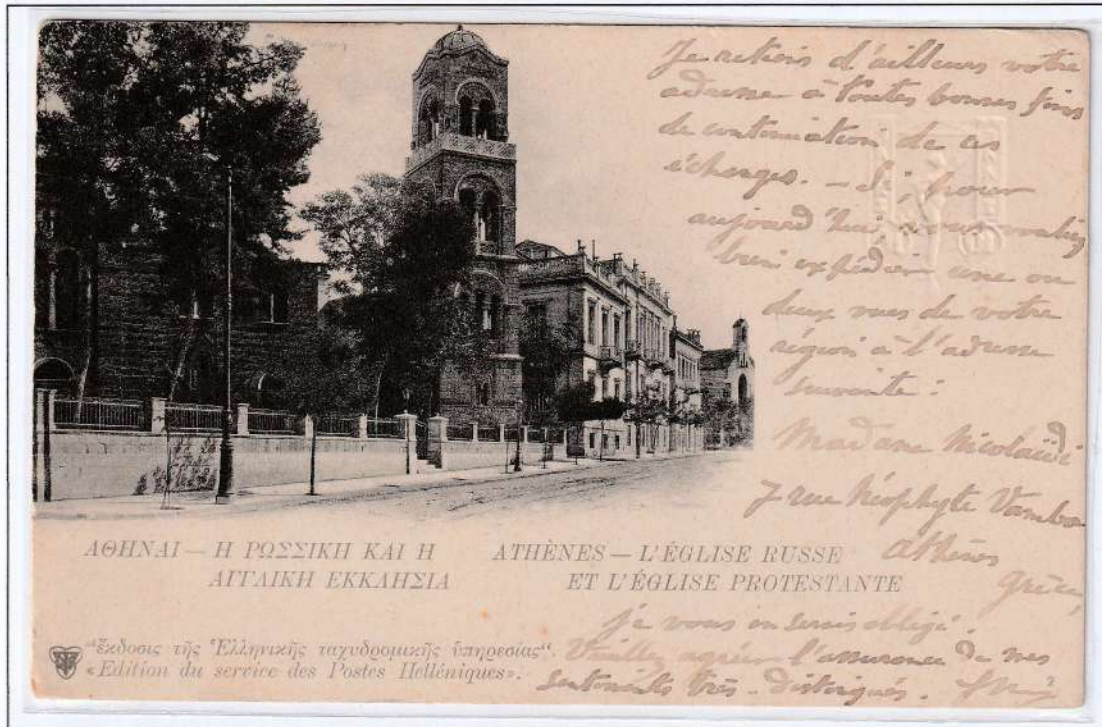 Je retiens d'ailleurs votre
adresse à toutes bonnes fins
de continuation de ces
échanges. – Si, pour
aujourd'hui, vous vouliez
bien expédier une ou
deux vues de votre
région à l'adresse
suivante :
Madame Nicolaïdi
7 rue Néophyte Vamba
Athènes
Grèce,
je vous en serais obligé.
Veuillez agréer l'assurance de mes
sentiments très-distingués.
ΑΘΗΝΑΙ — Η ΡΩΣΣΙΚΗ ΚΑΙ Η
ΑΓΓΛΙΚΗ ΕΚΚΛΗΣΙΑ
ATHÈNES — L'ÉGLISE RUSSE
ET L'ÉGLISE PROTESTANTE
"ἔκδοσις τῆς Ἑλληνικῆς ταχυδρομικῆς ὑπηρεσίας".
«Edition du service des Postes Helléniques».